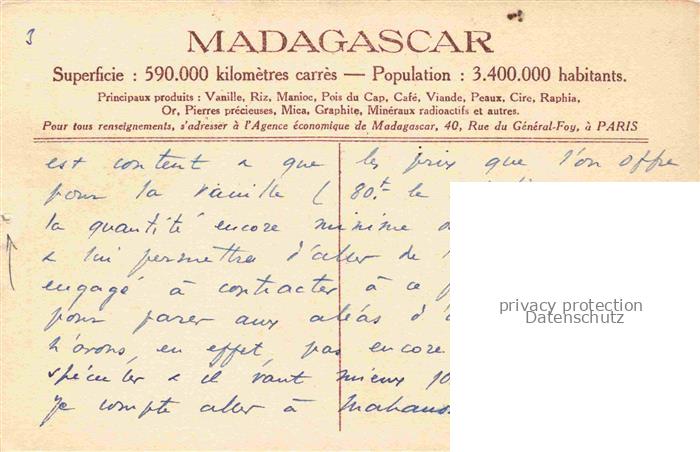 3
MADAGASCAR
Superficie : 590.000 kilomètres carrès — Population : 3.400.000 habitants.
Principaux produits : Vanille, Riz, Manioc, Pois du Cap, Café, Viande, Peaux, Cire, Raphia,
Or, Pierres précieuses, Mica, Graphite, Minéraux radioactifs et autres.
Pour tous renseignements, s'adresser à l'Agence économique de Madagascar, 40, Rue du Général-Foy, à PARIS
est content & que les prix que l'on offre
pour la vanille ( 80.f le
la quantité encore minime
& lui permettra d'aller de
engagé à contracter à ce
pour parer aux aléas
n'avons, en effet, pas encore
spéculer & il vaut mieux
Je compte aller à
privacy protection
Datenschutz